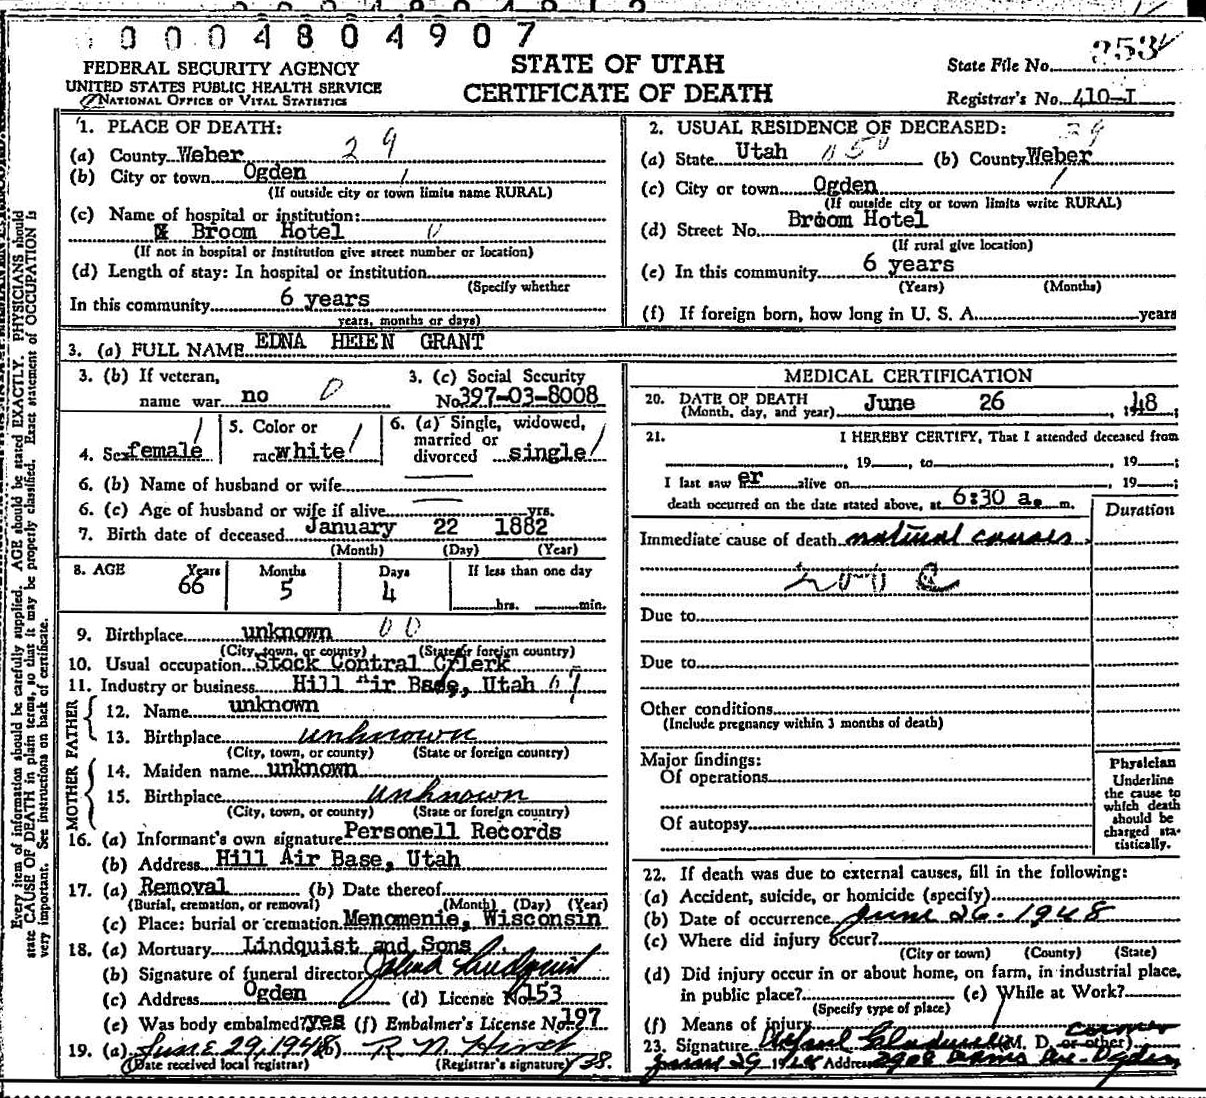 0004804907
FEDERAL SECURITY AGENCY
UNITED STATES PUBLIC HEALTH SERVICE
NATIONAL OFFICE OF VITAL STATISTICS
STATE OF UTAH
CERTIFICATE OF DEATH
State File No. 353
Registrar's No. 410-I
Every item of information should be carefully supplied. AGE should be stated EXACTLY. PHYSICIANS should
state CAUSE OF DEATH in plain terms, so that it may be properly classified. Exact statement of OCCUPATION is
very important. See instructions on back of certificate.
1. PLACE OF DEATH: 29
(a) County Weber
(b) City or town Ogden
(If outside city or town limits name RURAL)
(c) Name of hospital or institution:
Broom Hotel 0
(If not in hospital or institution give street number or location)
(d) Length of stay: In hospital or institution
(Specify whether
In this community 6 years
years, months or days)
2. USUAL RESIDENCE OF DECEASED: 29
(a) State Utah 050 (b) County Weber
(c) City or town Ogden
(If outside city or town limits write RURAL)
(d) Street No. Broom Hotel
(If rural give location)
(e) In this community 6 years
(Years) (Months)
(f) If foreign born, how long in U. S. A. years
3. (a) FULL NAME EDNA HELEN GRANT
3. (b) If veteran,
name war no 0
3. (c) Social Security
No. 397-03-8008
4. Sex female
5. Color or
race white
6. (a) Single, widowed,
married or
divorced single
6. (b) Name of husband or wife
6. (c) Age of husband or wife if alive yrs.
7. Birth date of deceased January 22 1882
(Month) (Day) (Year)
8. AGE Years Months Days If less than one day
66 5 4 hrs. min.
9. Birthplace unknown 00
(City, town, or county) (State or foreign country)
10. Usual occupation Stock Contral Clerk
11. Industry or business Hill Air Base, Utah
FATHER
12. Name unknown
13. Birthplace unknown
(City, town, or county) (State or foreign country)
MOTHER
14. Maiden name unknown
15. Birthplace unknown
(City, town, or county) (State or foreign country)
16. (a) Informant's own signature Personell Records
(b) Address Hill Air Base, Utah
17. (a) Removal (b) Date thereof
(Burial, cremation, or removal) (Month) (Day) (Year)
(c) Place: burial or cremation Menomenie, Wisconsin
18. (a) Mortuary Lindquist and Sons
(b) Signature of funeral director Lindquist
(c) Address Ogden (d) License No. 153
(e) Was body embalmed? yes (f) Embalmer's License No. 197
19. (a) June 29, 1948 (b) R N Hirst
(Date received local registrar) (Registrar's signature) 38.
MEDICAL CERTIFICATION
20. DATE OF DEATH
(Month, day, and year) June 26, 1948;
21. I HEREBY CERTIFY, That I attended deceased from
, 19 , to , 19 ;
I last saw er alive on , 19 ;
death occurred on the date stated above, at 6:30 a. m.
Duration
Immediate cause of death natural causes.
200 C
Due to
Due to
Other conditions
(Include pregnancy within 3 months of death)
Major findings:
Of operations
Of autopsy
Physician
Underline
the cause to
which death
should be
charged sta-
tistically.
22. If death was due to external causes, fill in the following:
(a) Accident, suicide, or homicide (specify)
(b) Date of occurrence June 26. 1948
(c) Where did injury occur?
(City or town) (County) (State)
(d) Did injury occur in or about home, on farm, in industrial place,
in public place? (e) While at Work?
(Specify type of place)
(f) Means of injury
coroner
23. Signature (M. D. or other)
June 29 1948 Address Adams Ave. Ogden